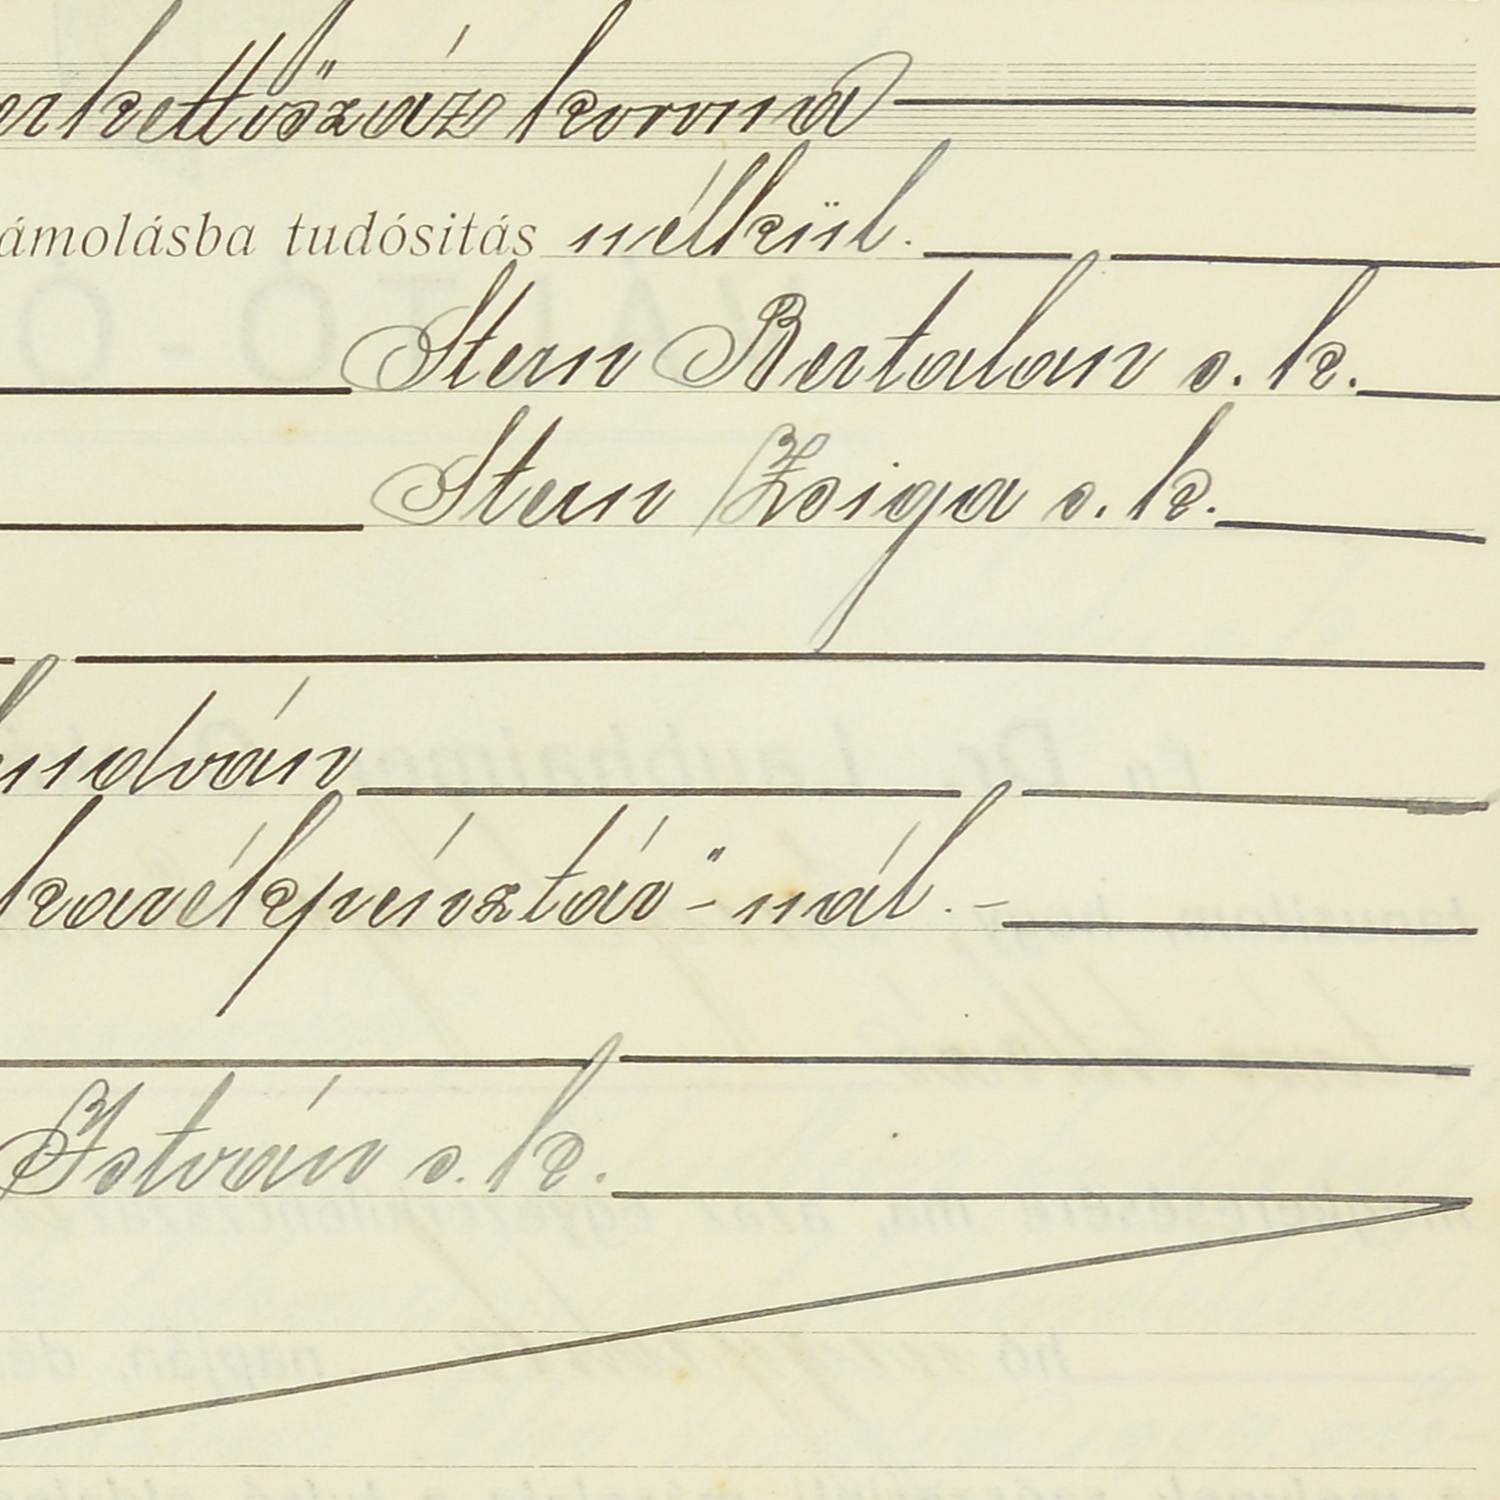 erkettőszáz korona
ámolásba tudósitás nélkül.
Stern Bertalan s. k.
Stern Zsiga s. k.
endván
karékpénztár"-nál.-
István s. k.